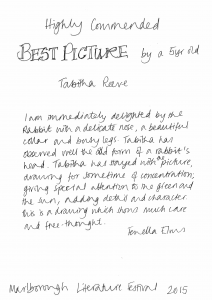 Highly Commended
BEST PICTURE by a 5yr old
Tabitha Reeve
I am immediately delighted by the
Rabbit with a delicate nose, a beautiful
collar and burly legs. Tabitha has
observed well the odd form of a rabbit's
head. Tabitha has stayed with the picture,
drawing for sometime of concentration,
giving special attention to the green and
the sun, adding detail and character.
this is a drawing which shows much care
and free-thought.
Fenella
Marlborough Literature Festival 2015